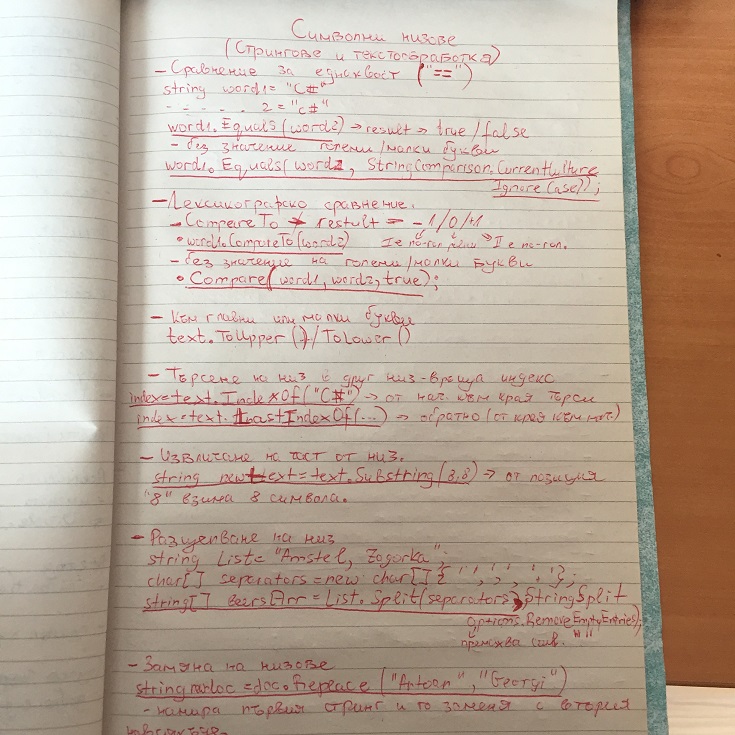 Символни низове
(Стрингове и текстообработка)
- Сравнение за еднаквост ("==")
string word1= "C#"
- - - - - 2 = "c#"
word1.Equals(word2) → result → true/false
- без значение големи/малки букви
word1.Equals(word2, StringComparison.CurrentCulture
IgnoreCase));
- Лексикографско сравнение.
- CompareTo → result = -1/0/+1
• word1.CompareTo(word2) I е по-гол. равни I е по-гол.
- без значение на големи/малки букви
• Compare(word1, word2, true);
- Към главни или малки букви
text.ToUpper()/ToLower()
- Търсене на низ в друг низ-връща индекс
index=text.IndexOf("C#") → от нач. към края търси
index=text.LastIndexOf(...) → обратно (от край към нач.)
- Извличане на част от низ.
string newtext=text.Substring(8,8) → от позиция
"8" взима 8 символа.
- Разцепване на низ
string List= "Amstel, Zagorka";
char[] separators = new char[] { ' ', ',', '.' };
string[] beersArr = List.Split(separators, StringSplit
Options.RemoveEmptyEntries);
премахва " "
- Замяна на низове
string = doc.Replace ("Antoan", "Georgi")
- намира първия стринг и го заменя с втория